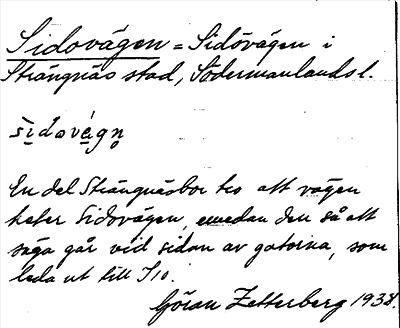 Sidovägen = Sidovägen i
Strängnäs stad, Södermanlands l.
sidovägn
En del Strängnäsbor tro att vägen
heter Sidovägen, emedan den så att
säga går vid sidan av gatorna, som
leda ut till
Göran Zetterberg 1938.